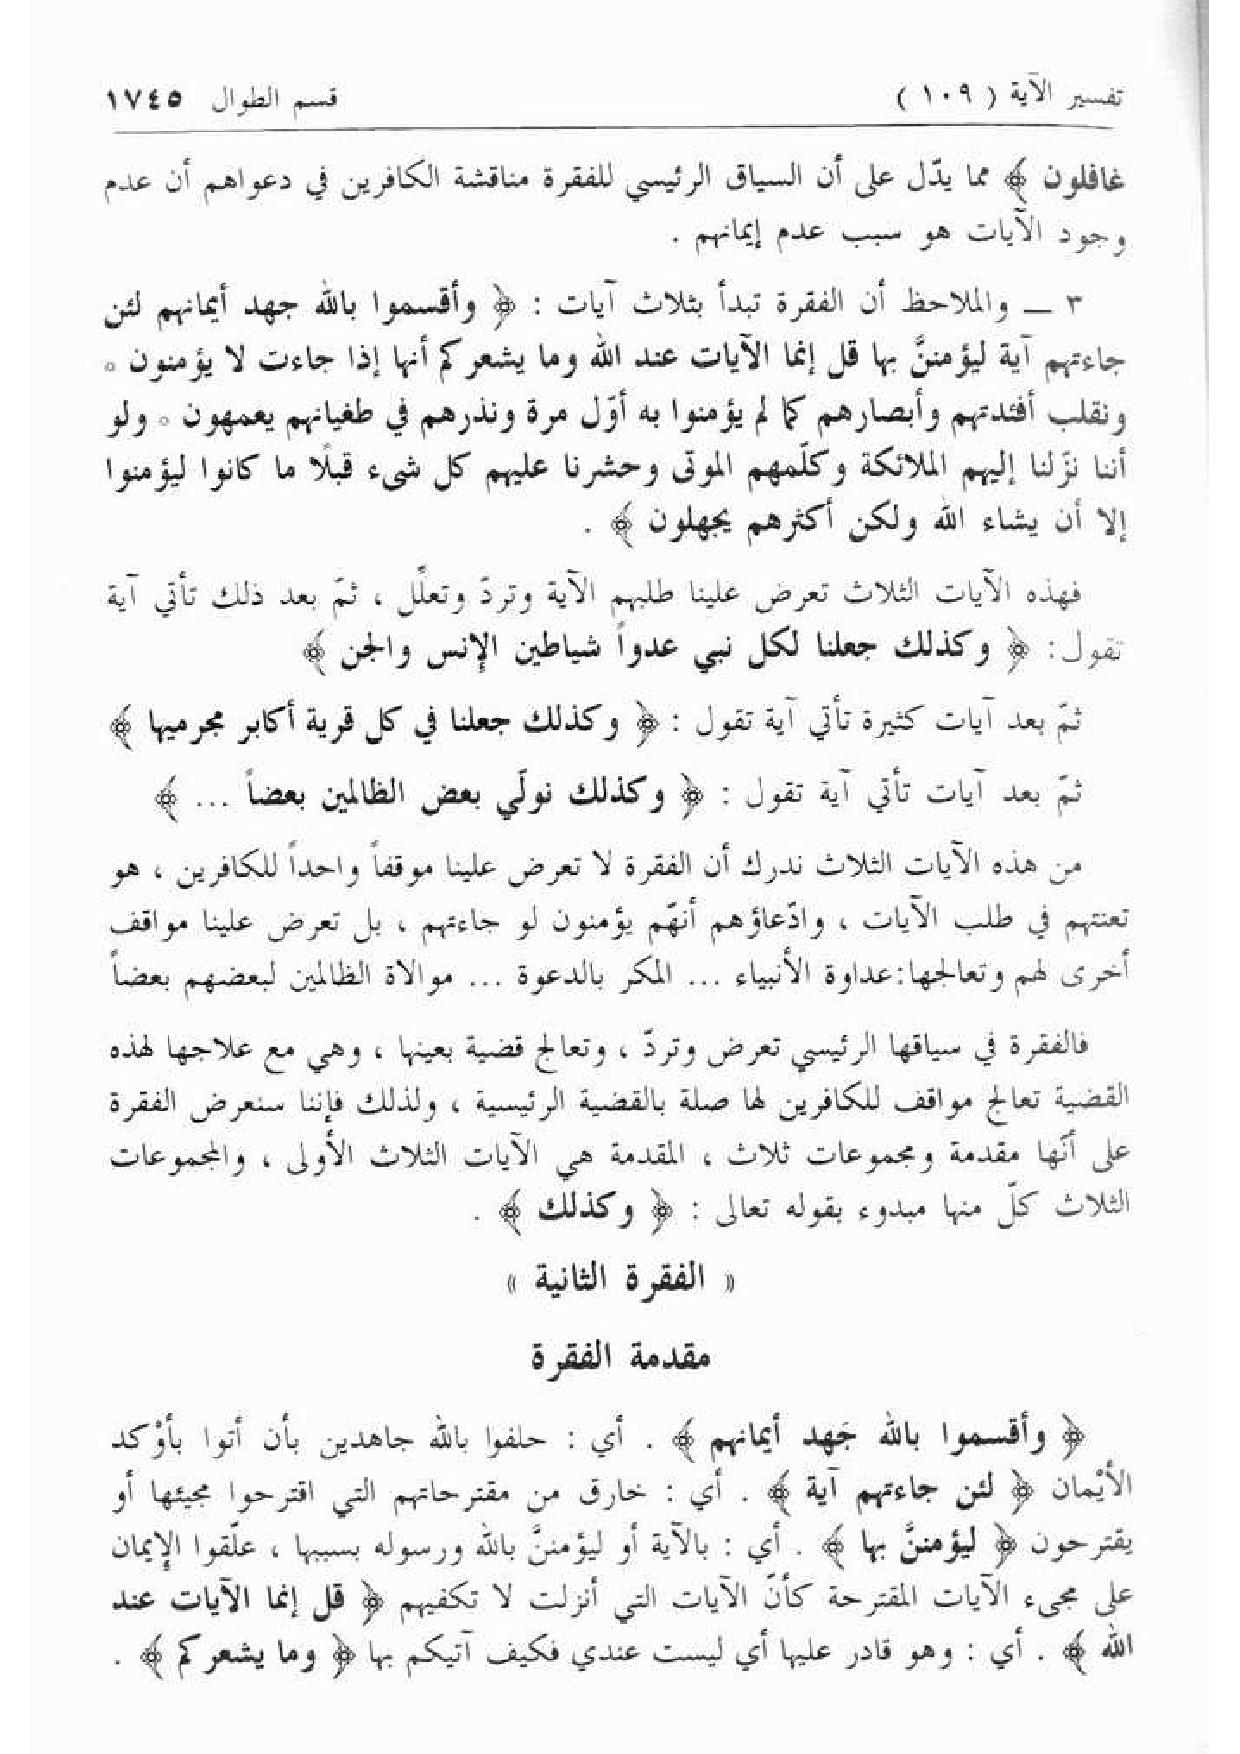 تفسير الآية ( ١٠٩ )
قسم الطوال ١٧٤٥
غافلون ﴾ مما يدّل على أن السياق الرئيسي للفقرة مناقشة الكافرين في دعواهم أن عدم
وجود الآيات هو سبب عدم إيمانهم .
٣ ـ والملاحظ أن الفقرة تبدأ بثلاث آيات : ﴿ وأقسموا بالله جهد أيمانهم لئن
جاءتهم آية ليؤمننَّ بها قل إنما الآيات عند الله وما يشعركم أنها إذا جاءت لا يؤمنون ٥
ونقلب أفئدتهم وأبصارهم كما لم يؤمنوا به أوّل مرة ونذرهم في طغيانهم يعمهون ٥ ولو
أننا نزّلنا إليهم الملائكة وكلّمهم الموتى وحشرنا عليهم كل شىء قبلًا ما كانوا ليؤمنوا
إلا أن يشاء الله ولكن أكثرهم يجهلون ﴾ .
فهذه الآيات الثلاث تعرض علينا طلبهم الآية وتردّ وتعلِّل ، ثمّ بعد ذلك تأتي آية
تقول: ﴿ وكذلك جعلنا لكل نبي عدواً شياطين الإنس والجن ﴾
ثمّ بعد آيات كثيرة تأتي آية تقول : ﴿ وكذلك جعلنا في كل قرية أكابر مجرميها ﴾
ثمّ بعد آيات تأتي آية تقول : ﴿ وكذلك نولّي بعض الظالمين بعضاً ... ﴾
من هذه الآيات الثلاث ندرك أن الفقرة لا تعرض علينا موقفاً واحداً للكافرين ، هو
تعنتهم في طلب الآيات ، وادّعاؤهم أنهّم يؤمنون لو جاءتهم ، بل تعرض علينا مواقف
أخرى لهم وتعالجها:عداوة الأنبياء ... المكر بالدعوة ... موالاة الظالمين لبعضهم بعضاً
فالفقرة في سياقها الرئيسي تعرض وتردّ ، وتعالج قضية بعينها ، وهي مع علاجها لهذه
القضية تعالج مواقف للكافرين لها صلة بالقضية الرئيسية ، ولذلك فإننا سنعرض الفقرة
على أنّها مقدمة ومجموعات ثلاث ، المقدمة هي الآيات الثلاث الأولى ، والمجموعات
الثلاث كلّ منها مبدوء بقوله تعالى : ﴿ وكذلك ﴾ .
« الفقرة الثانية »
مقدمة الفقرة
﴿ وأقسموا بالله جَهد أيمانهم ﴾ . أي : حلفوا بالله جاهدين بأن أتوا بأوْكد
الأيْمان ﴿ لئن جاءتهم آية ﴾ . أي : خارق من مقترحاتهم التي اقترحوا مجيئها أو
يقترحون ﴿ ليؤمننَّ بها ﴾ . أي : بالآية أو ليؤمننَّ بالله ورسوله بسببها ، علّقوا الإيمان
على مجىء الآيات المقترحة كأنّ الآيات التي أنزلت لا تكفيهم ﴿ قل إنما الآيات عند
الله ﴾ . أي : وهو قادر عليها أي ليست عندي فكيف آتيكم بها ﴿ وما يشعركم ﴾ .